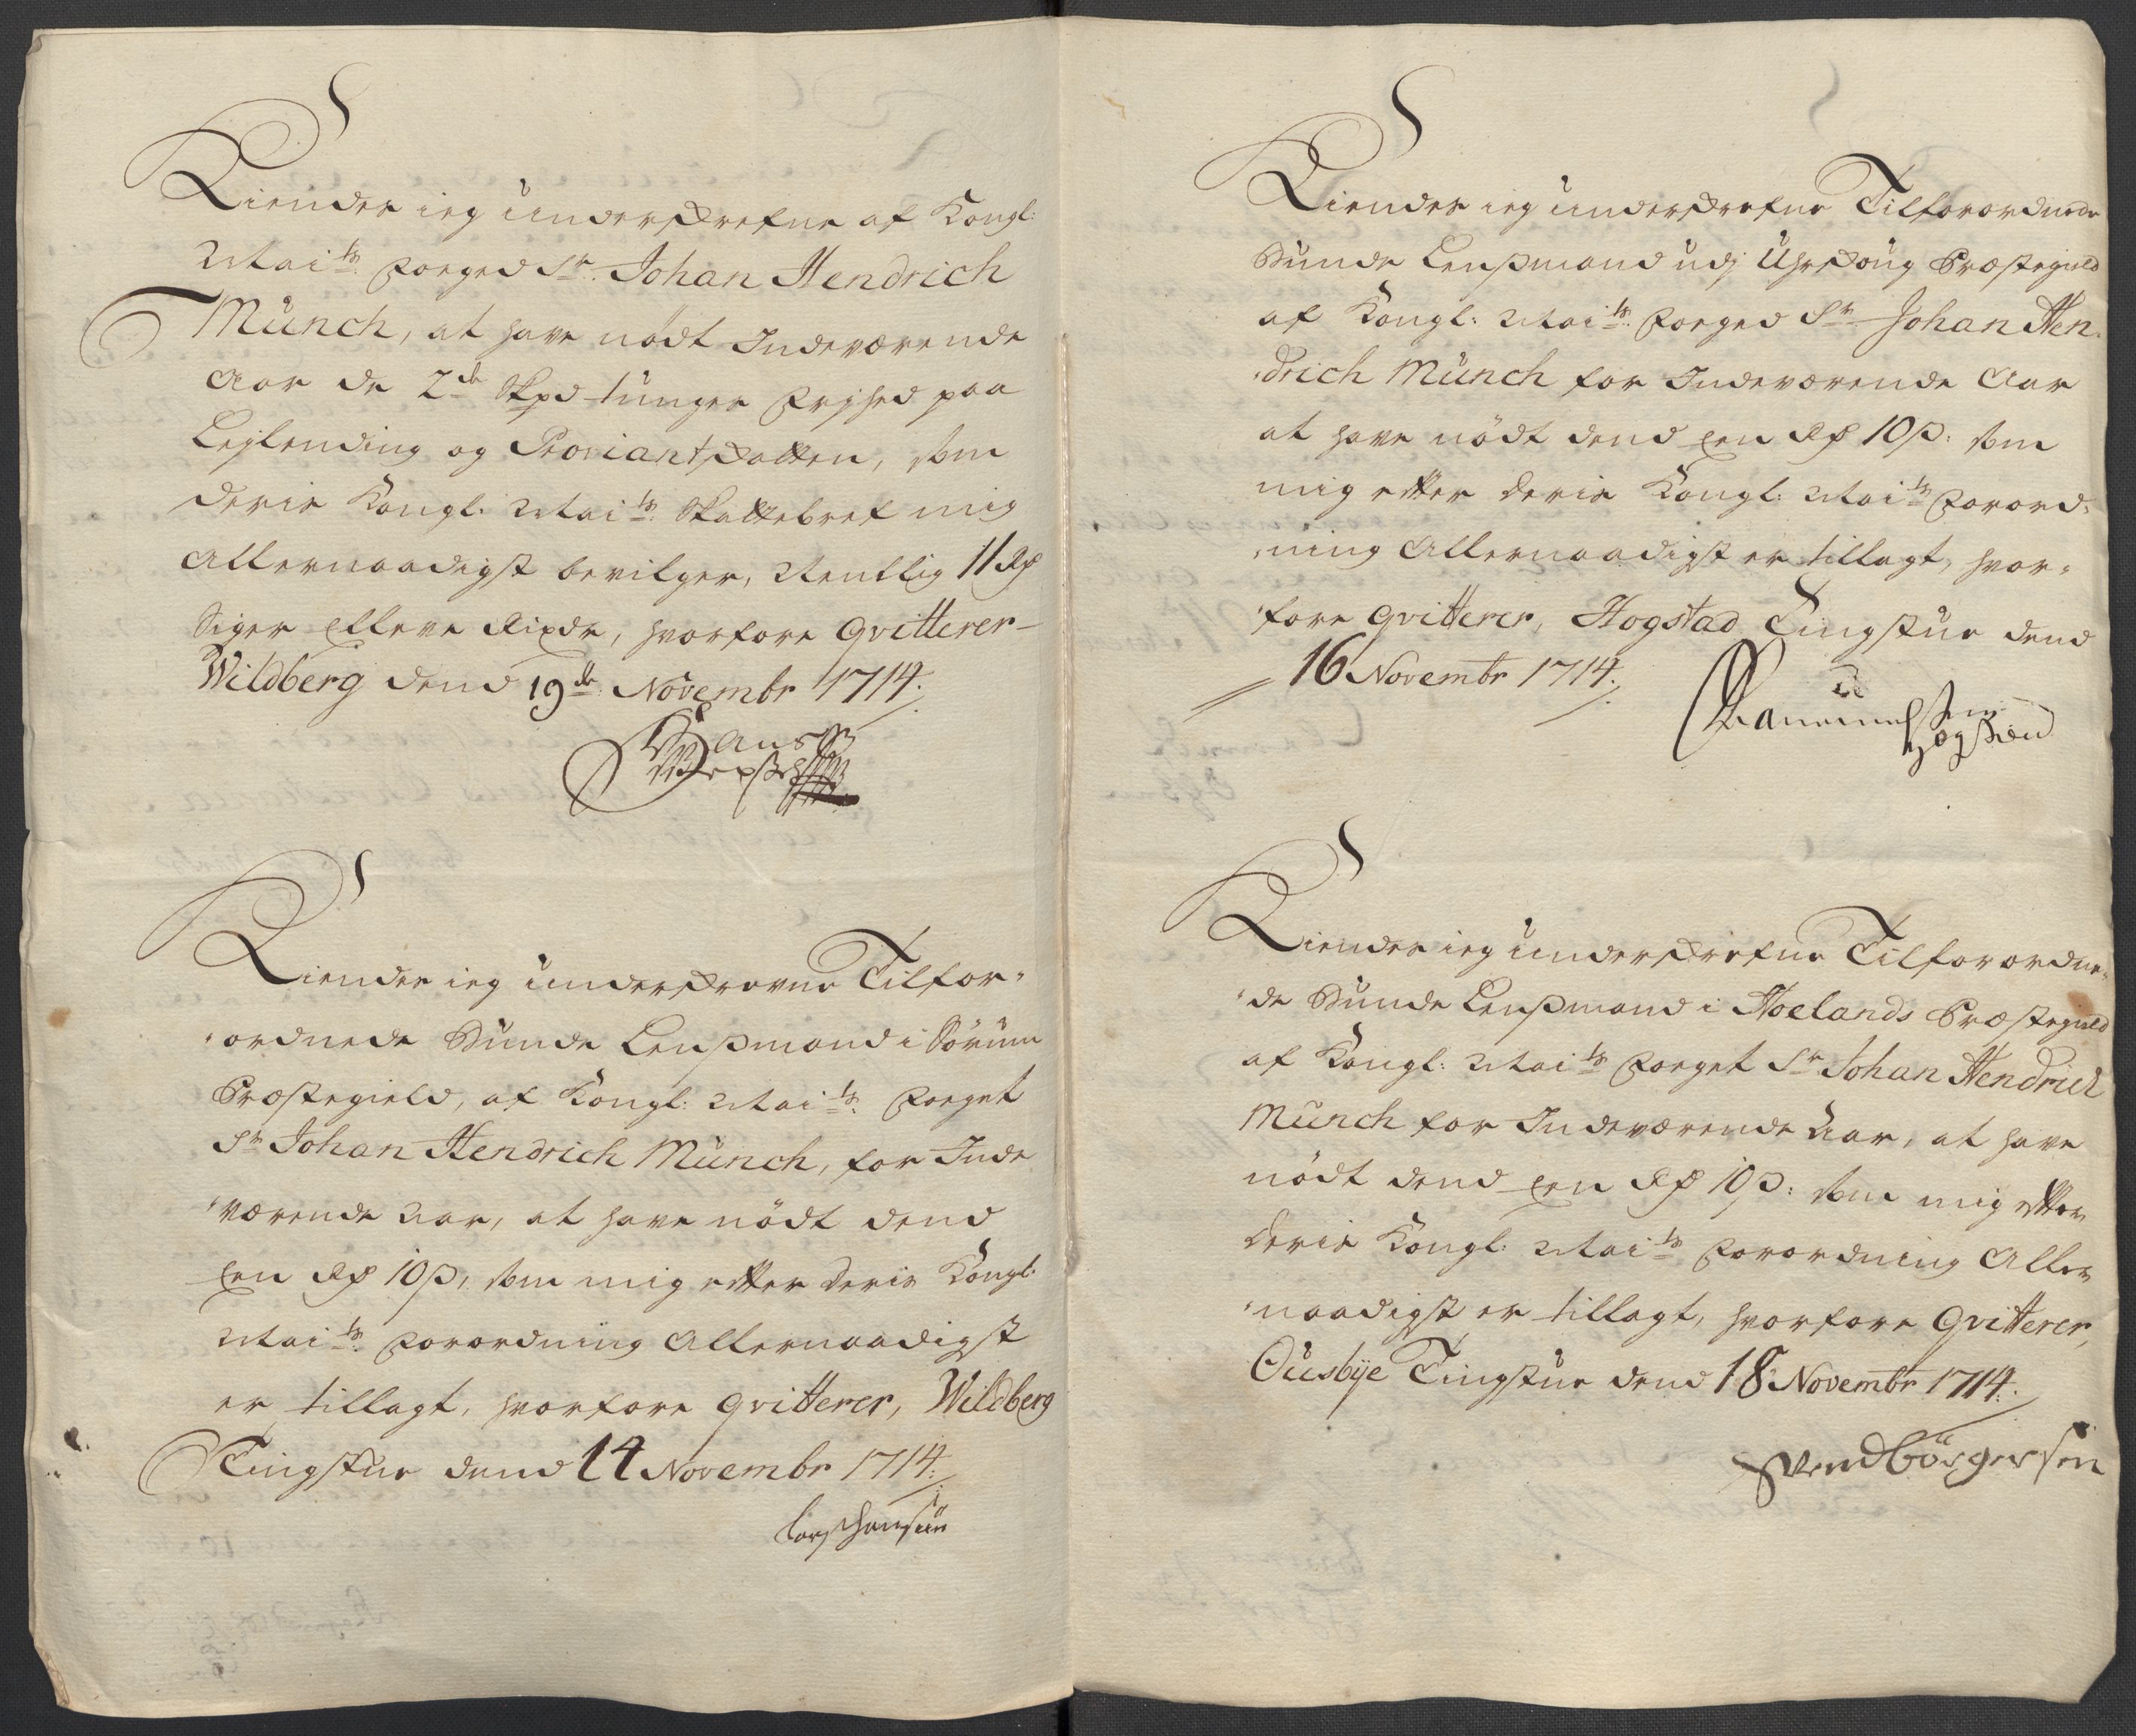 Kiender ieg underskrefne af Kongl:
Maits: Foeged Sr: Johan Hendrich
Münch, at have nödt Indeværende
Aar de 2de Skpd tunges Frjhed paa
Lejlending og Proviantskatten, som
deris Kongl: Maits: Skattebref mig
Allernaadigst bevilger, Nemblig 11 Rd
Siger Elleve Rixdr, hvorfore qvitterer
Wildberg dend 19de Novembr 1714.
Kiender ieg underskrevne Tilfor-
ordnede Bunde Lenßmand i Sörum
Præstegield, af Kongl: Maits: Foeget
Sr Johan Hendrich Münch, for Inde
værende Aar, at have nödt dend
Een Rd 10 ß, som mig efter deris Kongl:
Maits: Forordning Allernaadigst
er tillagt, hvorfore qvitterer, Wildberg
Tingstue dend 14 Novembr 1714.
Lars Hansen
Kiender ieg underskrefne Tilforordnede
Bunde Lenßmand udj Uhrskoug Præstegield
af Kongl: Maits: Foeged Sr Johan Hen-
drich Münch for Indeværende Aar
at have nödt dend Een Rd 10 ß: som
mig efter deris Kongl: Maits Forord-
ning Allernaadigst er tillagt, hvor-
fore qvitterer, Hogstad Tingstue dend
16 Novembr 1714.
Kiender ieg underskrefne Tilforordne-
de Bunde Lenßmand i Hoelands Præstegield
af Kongl: Maits Foeget Sr Johan Hendrich
Münch for Indeværende Aar, at have
nödt dend Een Rd 10 ß: som mig efter
deris Kongl: Maits Forordning Aller
naadigst er tillagt, hvorfore qvitterer,
Ousbye Tingstue dend 18 Novembr 1714.
Svend börgersen